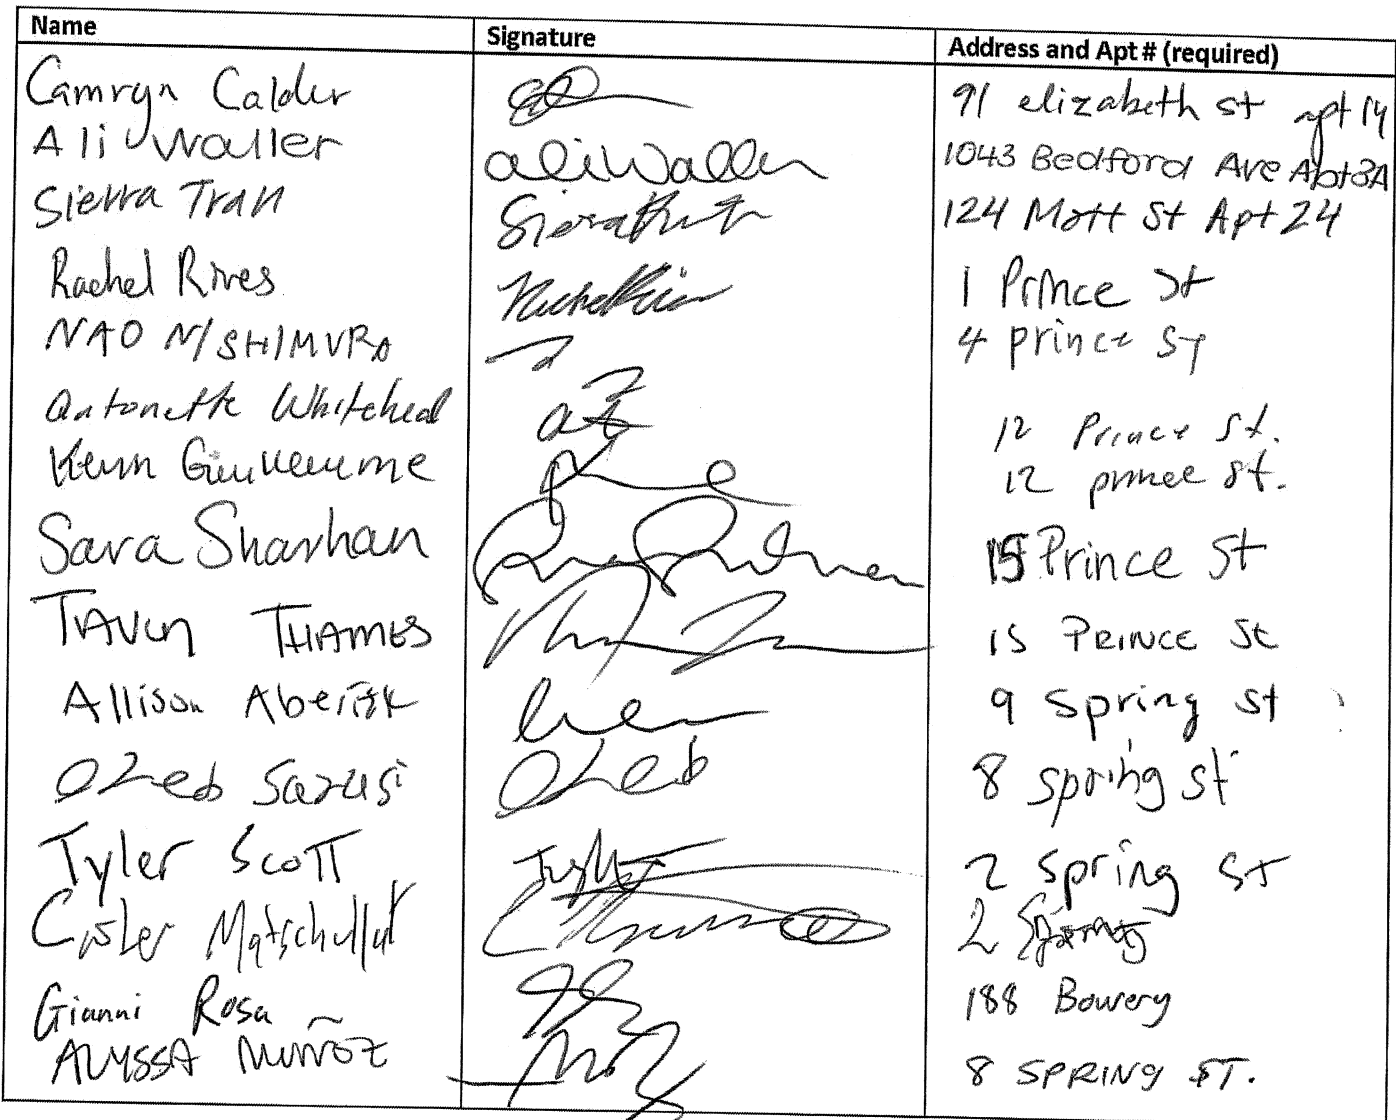 Name Signature Address and Apt # (required)
Camryn Calder 91 elizabeth st apt 14
Ali Waller ali Waller 1043 Bedford Ave Apt 3A
Sierra Tran Sierra 124 Mott St Apt 24
Rachel Rives Rachel 1 Prince St
NAO NISHIMURA 4 prince st
Antonette Whitehead 12 Prince St.
12 prince st.
Sara Sharhan 15 Prince St
THAMES 15 PRINCE St
Allison 9 Spring st
OZeb Sazusi OZeb 8 spring st
Tyler Scott 2 Spring St
2 Spring
Gianni Rosa 188 Bowery
ALYSSA MUÑOZ 8 SPRING ST.